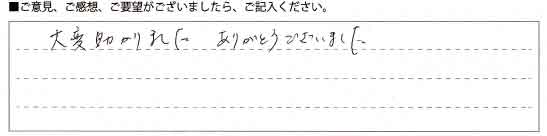 ■ご意見、ご感想、ご要望がございましたら、ご記入ください。
大変助かりました ありがとうございました